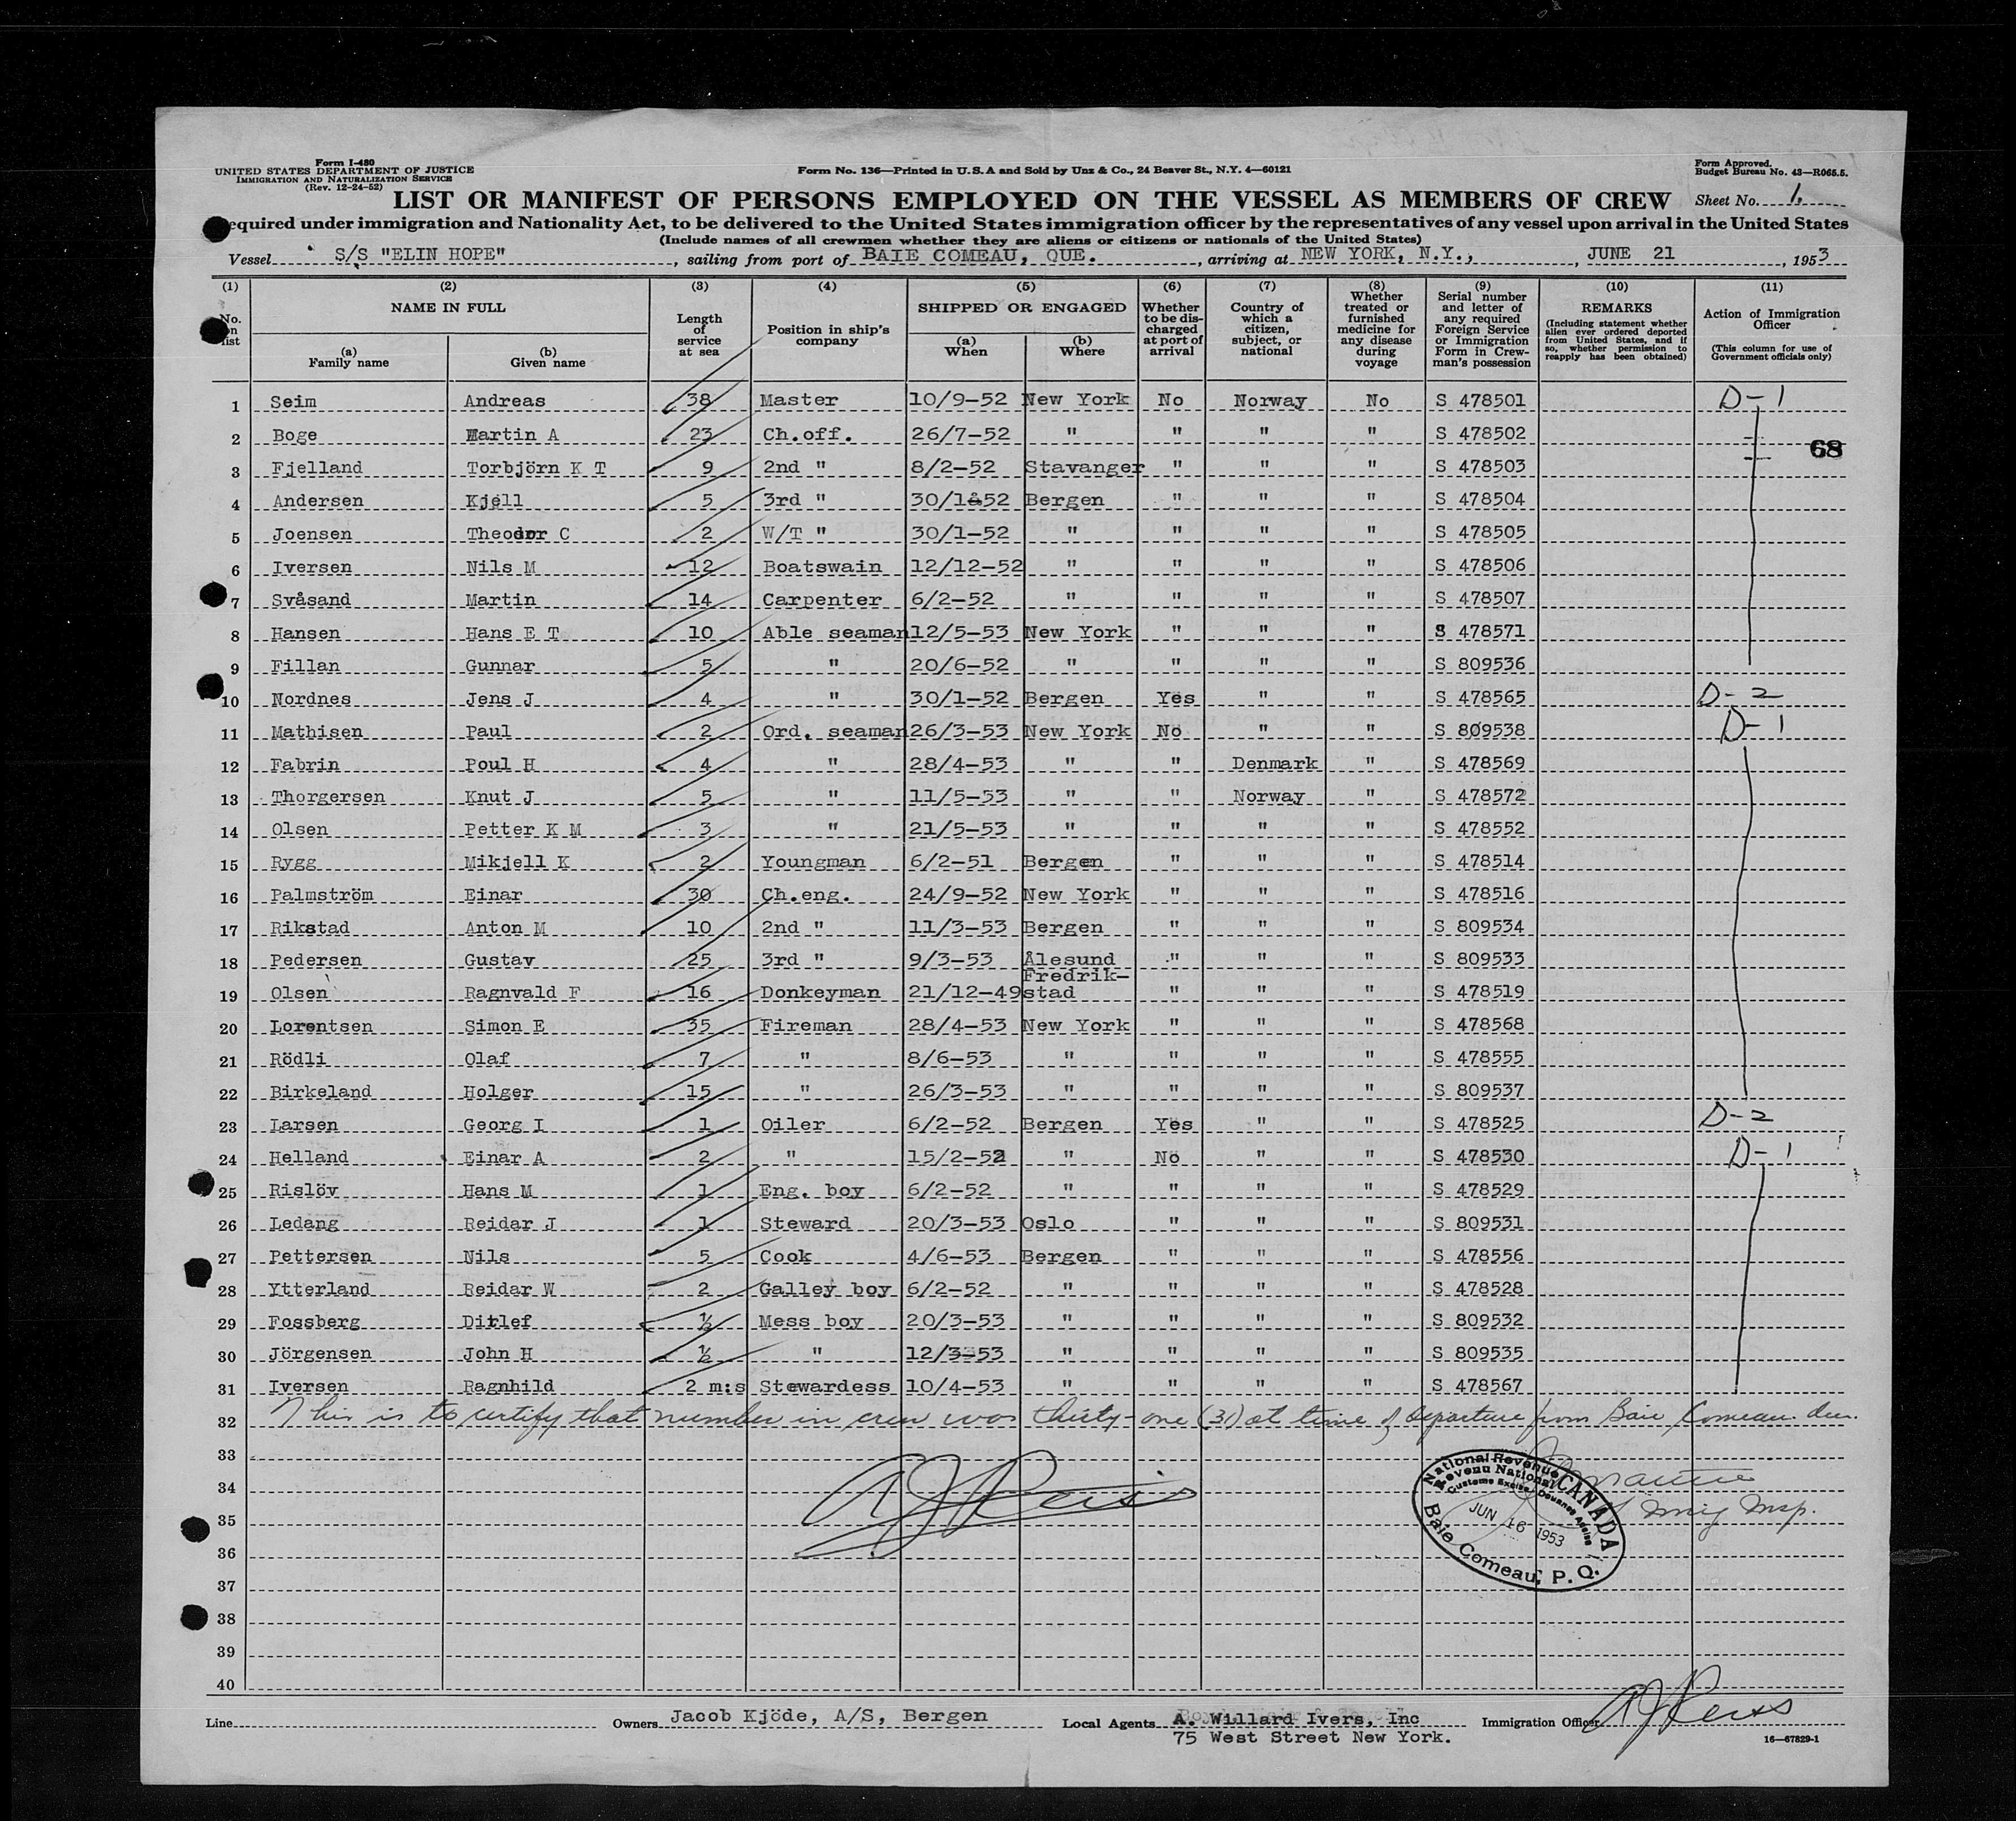 Form I-480
UNITED STATES DEPARTMENT OF JUSTICE
IMMIGRATION AND NATURALIZATION SERVICE
(Rev. 12-24-52)
Form No. 136—Printed in U.S.A and Sold by Unz & Co., 24 Beaver St., N.Y. 4—60121
Form Approved.
Budget Bureau No. 43—R065.5.
LIST OR MANIFEST OF PERSONS EMPLOYED ON THE VESSEL AS MEMBERS OF CREW
Sheet No. 1.
equired under immigration and Nationality Act, to be delivered to the United States immigration officer by the representatives of any vessel upon arrival in the United States
(Include names of all crewmen whether they are aliens or citizens or nationals of the United States)
Vessel S/S "ELIN HOPE", sailing from port of BAIE COMEAU, QUE., arriving at NEW YORK, N.Y., JUNE 21, 1953
(1) No. on list
(2) NAME IN FULL
(a) Family name
(b) Given name
(3) Length of service at sea
(4) Position in ship's company
(5) SHIPPED OR ENGAGED
(a) When
(b) Where
(6) Whether to be discharged at port of arrival
(7) Country of which a citizen, subject, or national
(8) Whether treated or furnished medicine for any disease during voyage
(9) Serial number and letter of any required Foreign Service or Immigration Form in Crewman's possession
(10) REMARKS (Including statement whether alien ever ordered deported from United States, and if so, whether permission to reapply has been obtained)
(11) Action of Immigration Officer (This column for use of Government officials only)
1 Seim Andreas 38 Master 10/9-52 New York No Norway No S 478501 D-1
2 Boge Martin A 23 Ch.off. 26/7-52 " " " " S 478502
68
3 Fjelland Torbjörn K T 9 2nd " 8/2-52 Stavanger " " " S 478503
4 Andersen Kjell 5 3rd " 30/1-52 Bergen " " " S 478504
5 Joensen Theodor C 2 W/T " 30/1-52 " " " " S 478505
6 Iversen Nils M 12 Boatswain 12/12-52 " " " " S 478506
7 Svåsand Martin 14 Carpenter 6/2-52 " " " " S 478507
8 Hansen Hans E T 10 Able seaman 12/5-53 New York " " " S 478571
9 Fillan Gunnar 5 " 20/6-52 " " " " S 809536
10 Nordnes Jens J 4 " 30/1-52 Bergen Yes " " S 478565 D-2
11 Mathisen Paul 2 Ord. seaman 26/3-53 New York No " " S 809538 D-1
12 Fabrin Poul H 4 " 28/4-53 " " Denmark " S 478569
13 Thorgersen Knut J 5 " 11/5-53 " " Norway " S 478572
14 Olsen Petter K M 3 " 21/5-53 " " " " S 478552
15 Rygg Mikjell K 2 Youngman 6/2-51 Bergen " " " S 478514
16 Palmström Einar 30 Ch.eng. 24/9-52 New York " " " S 478516
17 Rikstad Anton M 10 2nd " 11/3-53 Bergen " " " S 809534
18 Pedersen Gustav 25 3rd " 9/3-53 Ålesund " " " S 809533
19 Olsen Ragnvald F 16 Donkeyman 21/12-49 Fredrik-stad " " " S 478519
20 Lorentsen Simon E 35 Fireman 28/4-53 New York " " " S 478568
21 Rödli Olaf 7 " 8/6-53 " " " " S 478555
22 Birkeland Holger 15 " 26/3-53 " " " " S 809537
23 Larsen Georg I 1 Oiler 6/2-52 Bergen Yes " " S 478525 D-2
24 Helland Einar A 2 " 15/2-52 " No " " S 478530 D-1
25 Rislöv Hans M 1 Eng. boy 6/2-52 " " " " S 478529
26 Ledang Reidar J 1 Steward 20/3-53 Oslo " " " S 809531
27 Pettersen Nils 5 Cook 4/6-53 Bergen " " " S 478556
28 Ytterland Reidar W 2 Galley boy 6/2-52 " " " " S 478528
29 Fossberg Ditlef ½ Mess boy 20/3-53 " " " " S 809532
30 Jörgensen John H ½ " 12/3-53 " " " " S 809535
31 Iversen Ragnhild 2 m:s Stewardess 10/4-53 " " " " S 478567
32 This is to certify that number in crew was thirty-one (31) at time of departure from Baie Comeau
33
34
35 Imig Insp.
National Revenue CANADA
Revenu National
Customs Excise Douanes Accise
JUN 16 1953
Baie Comeau, P. Q.
36
37
38
39
40
Line
Owners Jacob Kjöde, A/S, Bergen
Local Agents A. Willard Ivers, Inc
75 West Street New York.
Immigration Officer
16—67829-1